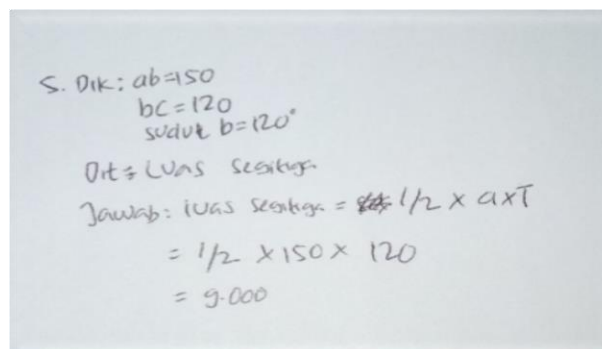 5. Dik: ab=150
bc=120
sudut b=120°
Dit = Luas segitiga
Jawab: luas segitiga = 1/2 x axT
= 1/2 x150x 120
= 9.000